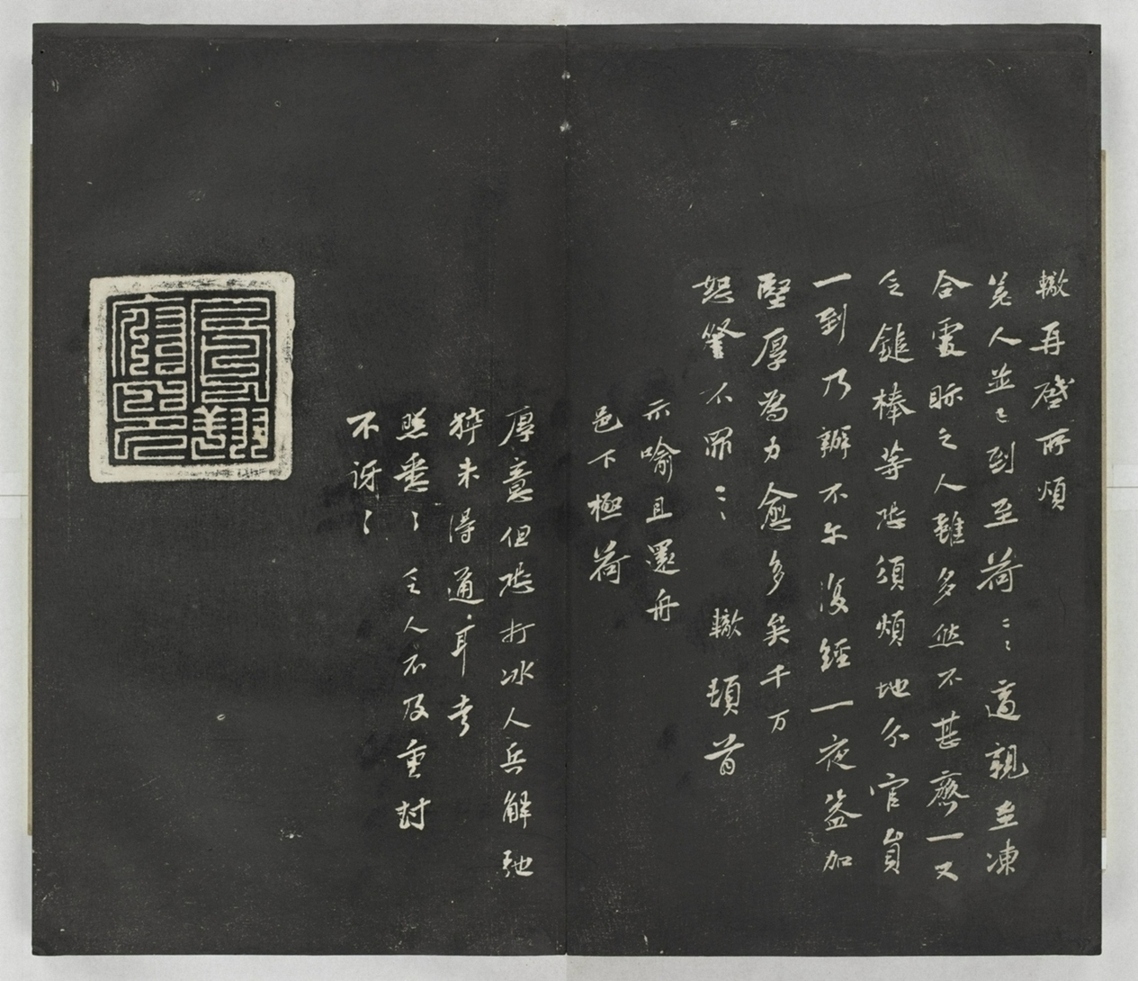 轍再啓所煩
兵人並已到至荷〻適親至凍
合處眎之人雖多然不甚齊一又
乏鎚棒等恐須煩地分官員
一到乃辦不尔復經一夜益加
堅厚為力愈多矣千万
恕 不罪〻 轍頓首
示喻且還舟
邑下極荷
厚意但恐打冰人兵解弛
猝未得通耳幸
照垂〻 乏人不及重封
不訝〻